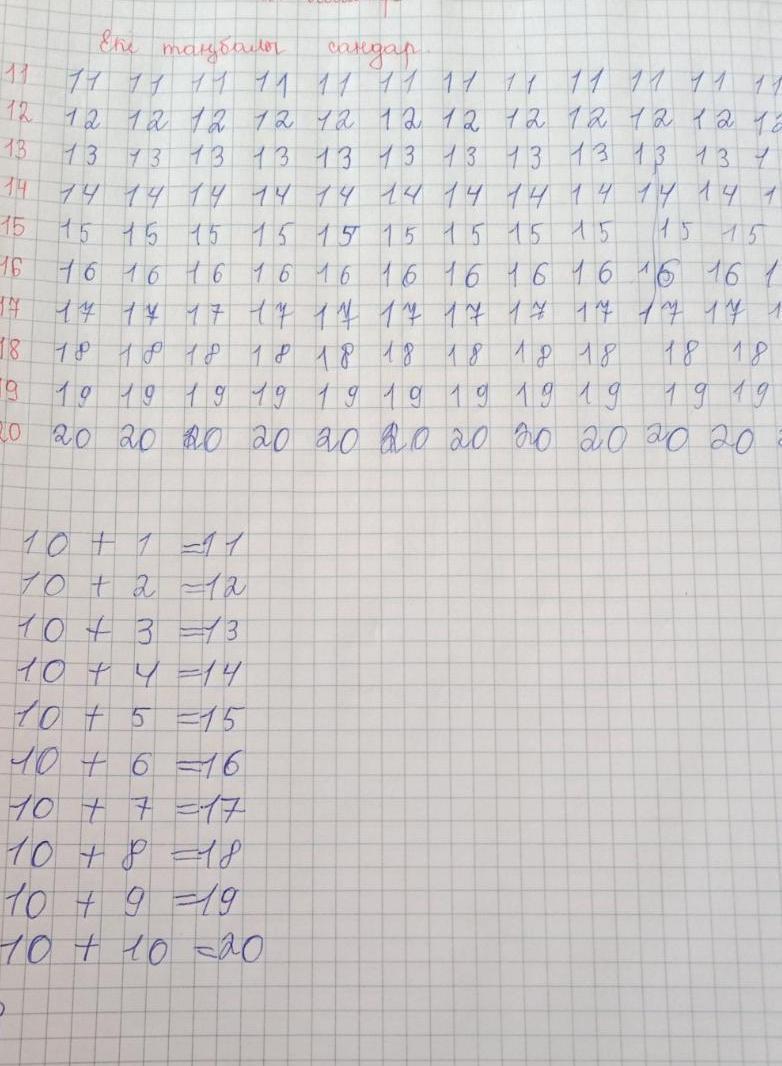 Екі таңбалы сандар.
11 11 11 11 11 11 11 11 11 11 11 11 11
12 12 12 12 12 12 12 12 12 12 12 12 12
13 13 13 13 13 13 13 13 13 13 13 13 1
14 14 14 14 14 14 14 14 14 14 14 14 1
15 15 15 15 15 15 15 15 15 15 15 15
16 16 16 16 16 16 16 16 16 16 16 16 1
17 17 17 17 17 17 17 17 17 17 17 17 1
18 18 18 18 18 18 18 18 18 18 18 18
19 19 19 19 19 19 19 19 19 19 19 19
20 20 20 20 20 20 20 20 20 20 20 20
10 + 1 =11
10 + 2 =12
10 + 3 =13
10 + 4 =14
10 + 5 =15
10 + 6 =16
10 + 7 =17
10 + 8 =18
10 + 9 =19
10 + 10 =20